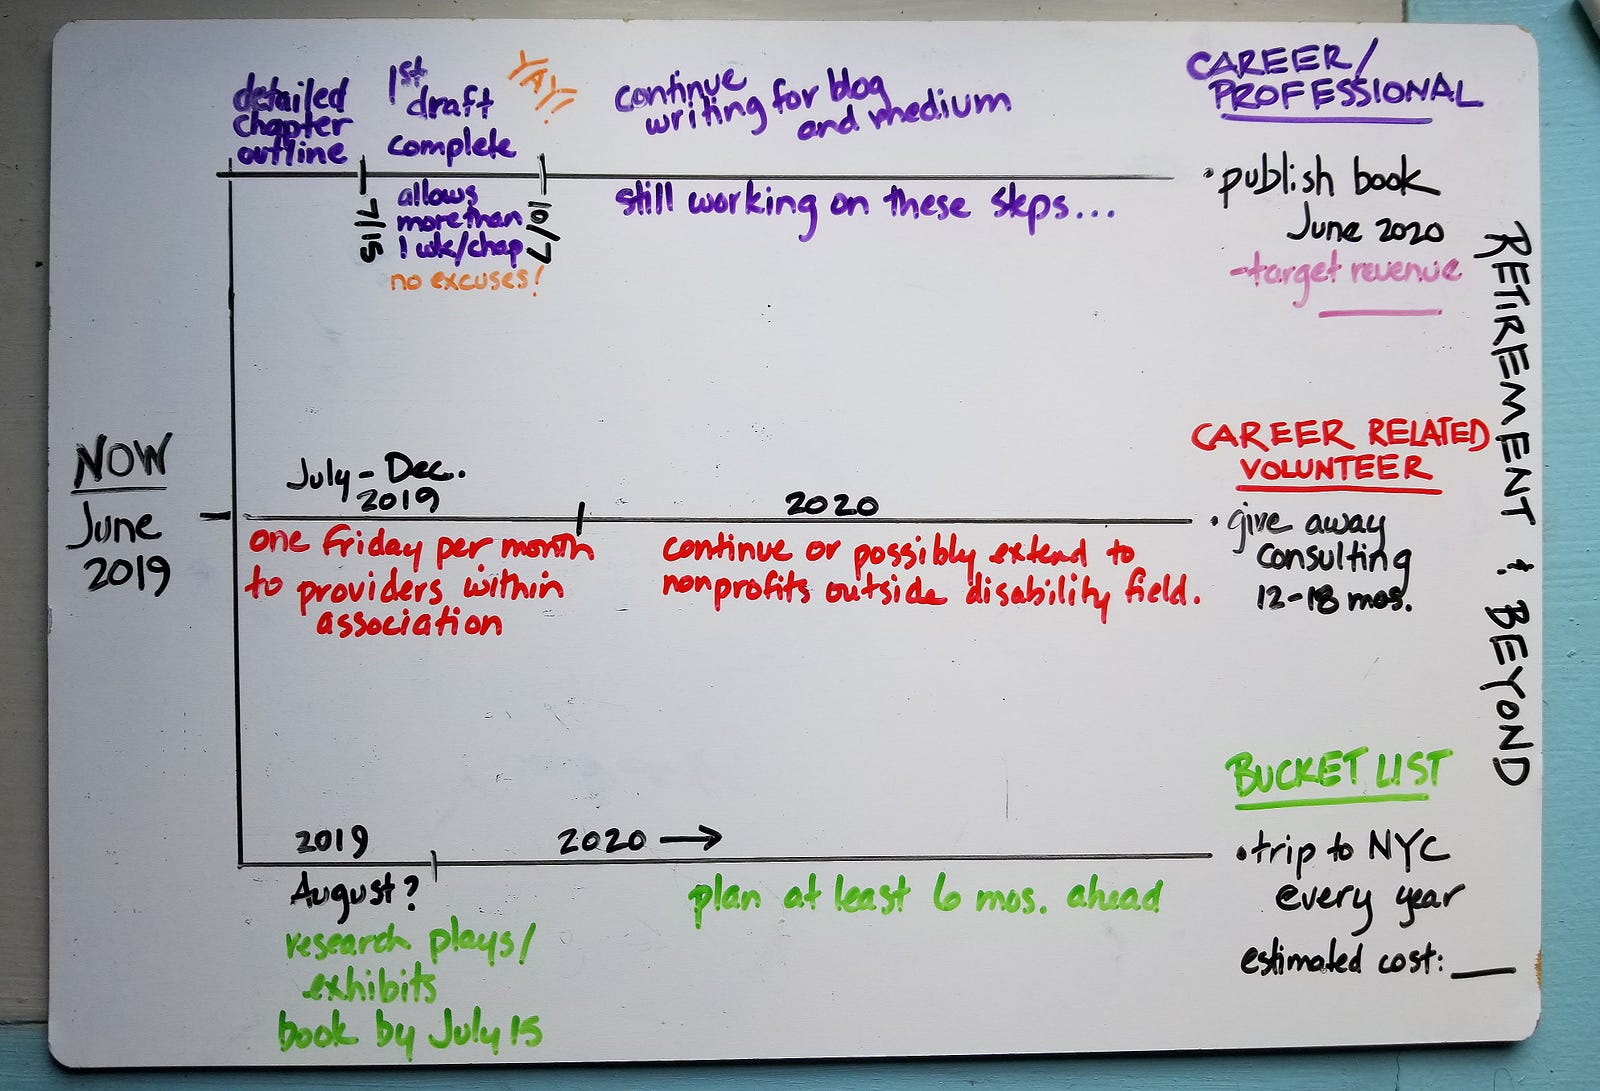 detailed
chapter
outline
1st
draft
complete
YAY!
continue
writing for blog
and medium
CAREER/
PROFESSIONAL
7/15
allows
more than
1 wk/chap
no excuses!
10/7
still working on these steps...
• publish book
June 2020
- target revenue
RETIREMENT & BEYOND
NOW
June
2019
July - Dec.
2019
2020
one Friday per month
to providers within
association
continue or possibly extend to
nonprofits outside disability field.
CAREER RELATED
VOLUNTEER
• give away
consulting
12-18 mos.
2019
2020 →
August?
research plays/
exhibits
book by July 15
plan at least 6 mos. ahead
BUCKET LIST
• trip to NYC
every year
estimated cost: ___